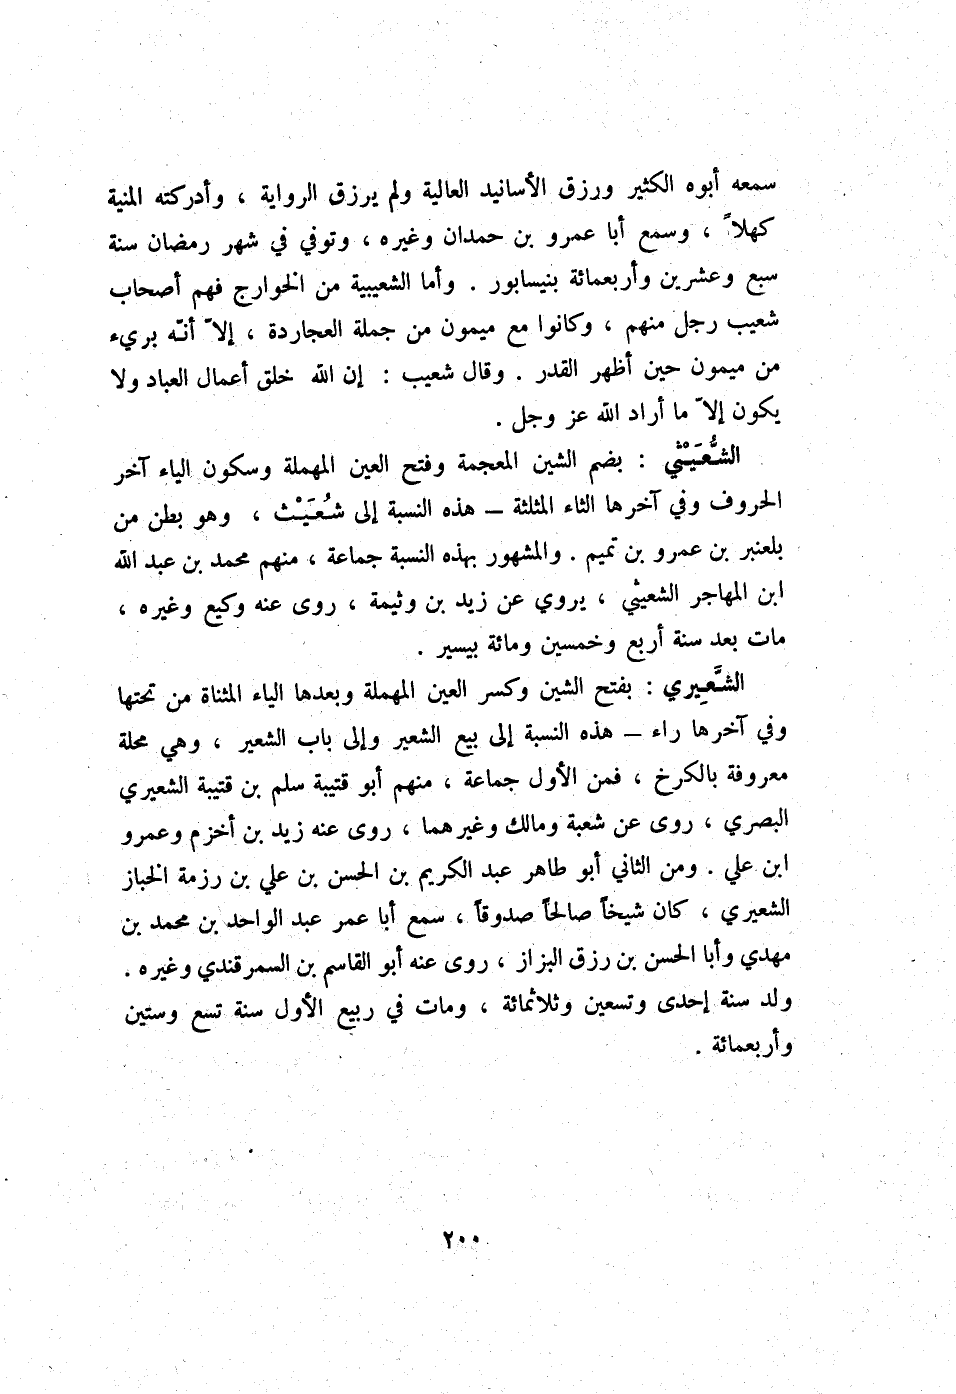 سمعه أبوه الكثير ورزق الأسانيد العالية ولم يرزق الرواية ، وأدركته المنية
كهلاً ، وسمع أبا عمرو بن حمدان وغيره ، وتوفي في شهر رمضان سنة
سبع وعشرين وأربعمائة بنيسابور . وأما الشعيبية من الخوارج فهم أصحاب
شعيب رجل منهم ، وكانوا مع ميمون من جملة العجاردة ، إلاّ أنّه بريء
من ميمون حين أظهر القدر . وقال شعيب : إن الله خلق أعمال العباد ولا
يكون إلاّ ما أراد الله عز وجل .
الشُّعَيْثي : بضم الشين المعجمة وفتح العين المهملة وسكون الياء آخر
الحروف وفي آخرها الثاء المثلثة — هذه النسبة إلى شُعَيْث ، وهو بطن من
بلعنبر بن عمرو بن تميم . والمشهور بهذه النسبة جماعة ، منهم محمد بن عبد الله
ابن المهاجر الشعيثي ، يروي عن زيد بن وثيمة ، روى عنه وكيع وغيره ،
مات بعد سنة أربع وخمسين ومائة بيسير .
الشَّعِيري : بفتح الشين وكسر العين المهملة وبعدها الياء المثناة من تحتها
وفي آخرها راء — هذه النسبة إلى بيع الشعير وإلى باب الشعير ، وهي محلة
معروفة بالكرخ ، فمن الأول جماعة ، منهم أبو قتيبة سلم بن قتيبة الشعيري
البصري ، روى عن شعبة ومالك وغيرهما ، روى عنه زيد بن أخزم وعمرو
ابن علي . ومن الثاني أبو طاهر عبد الكريم بن الحسن بن علي بن رزمة الخباز
الشعيري ، كان شيخاً صالحاً صدوقاً ، سمع أبا عمر عبد الواحد بن محمد بن
مهدي وأبا الحسن بن رزق البزاز ، روى عنه أبو القاسم بن السمرقندي وغيره .
ولد سنة إحدى وتسعين وثلاثمائة ، ومات في ربيع الأول سنة تسع وستين
وأربعمائة .
٢٠٠